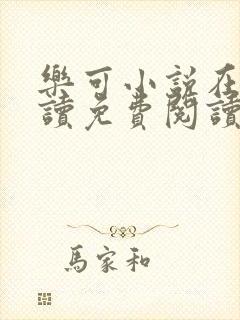 樂可小說在
讀免費閱讀
馬家和